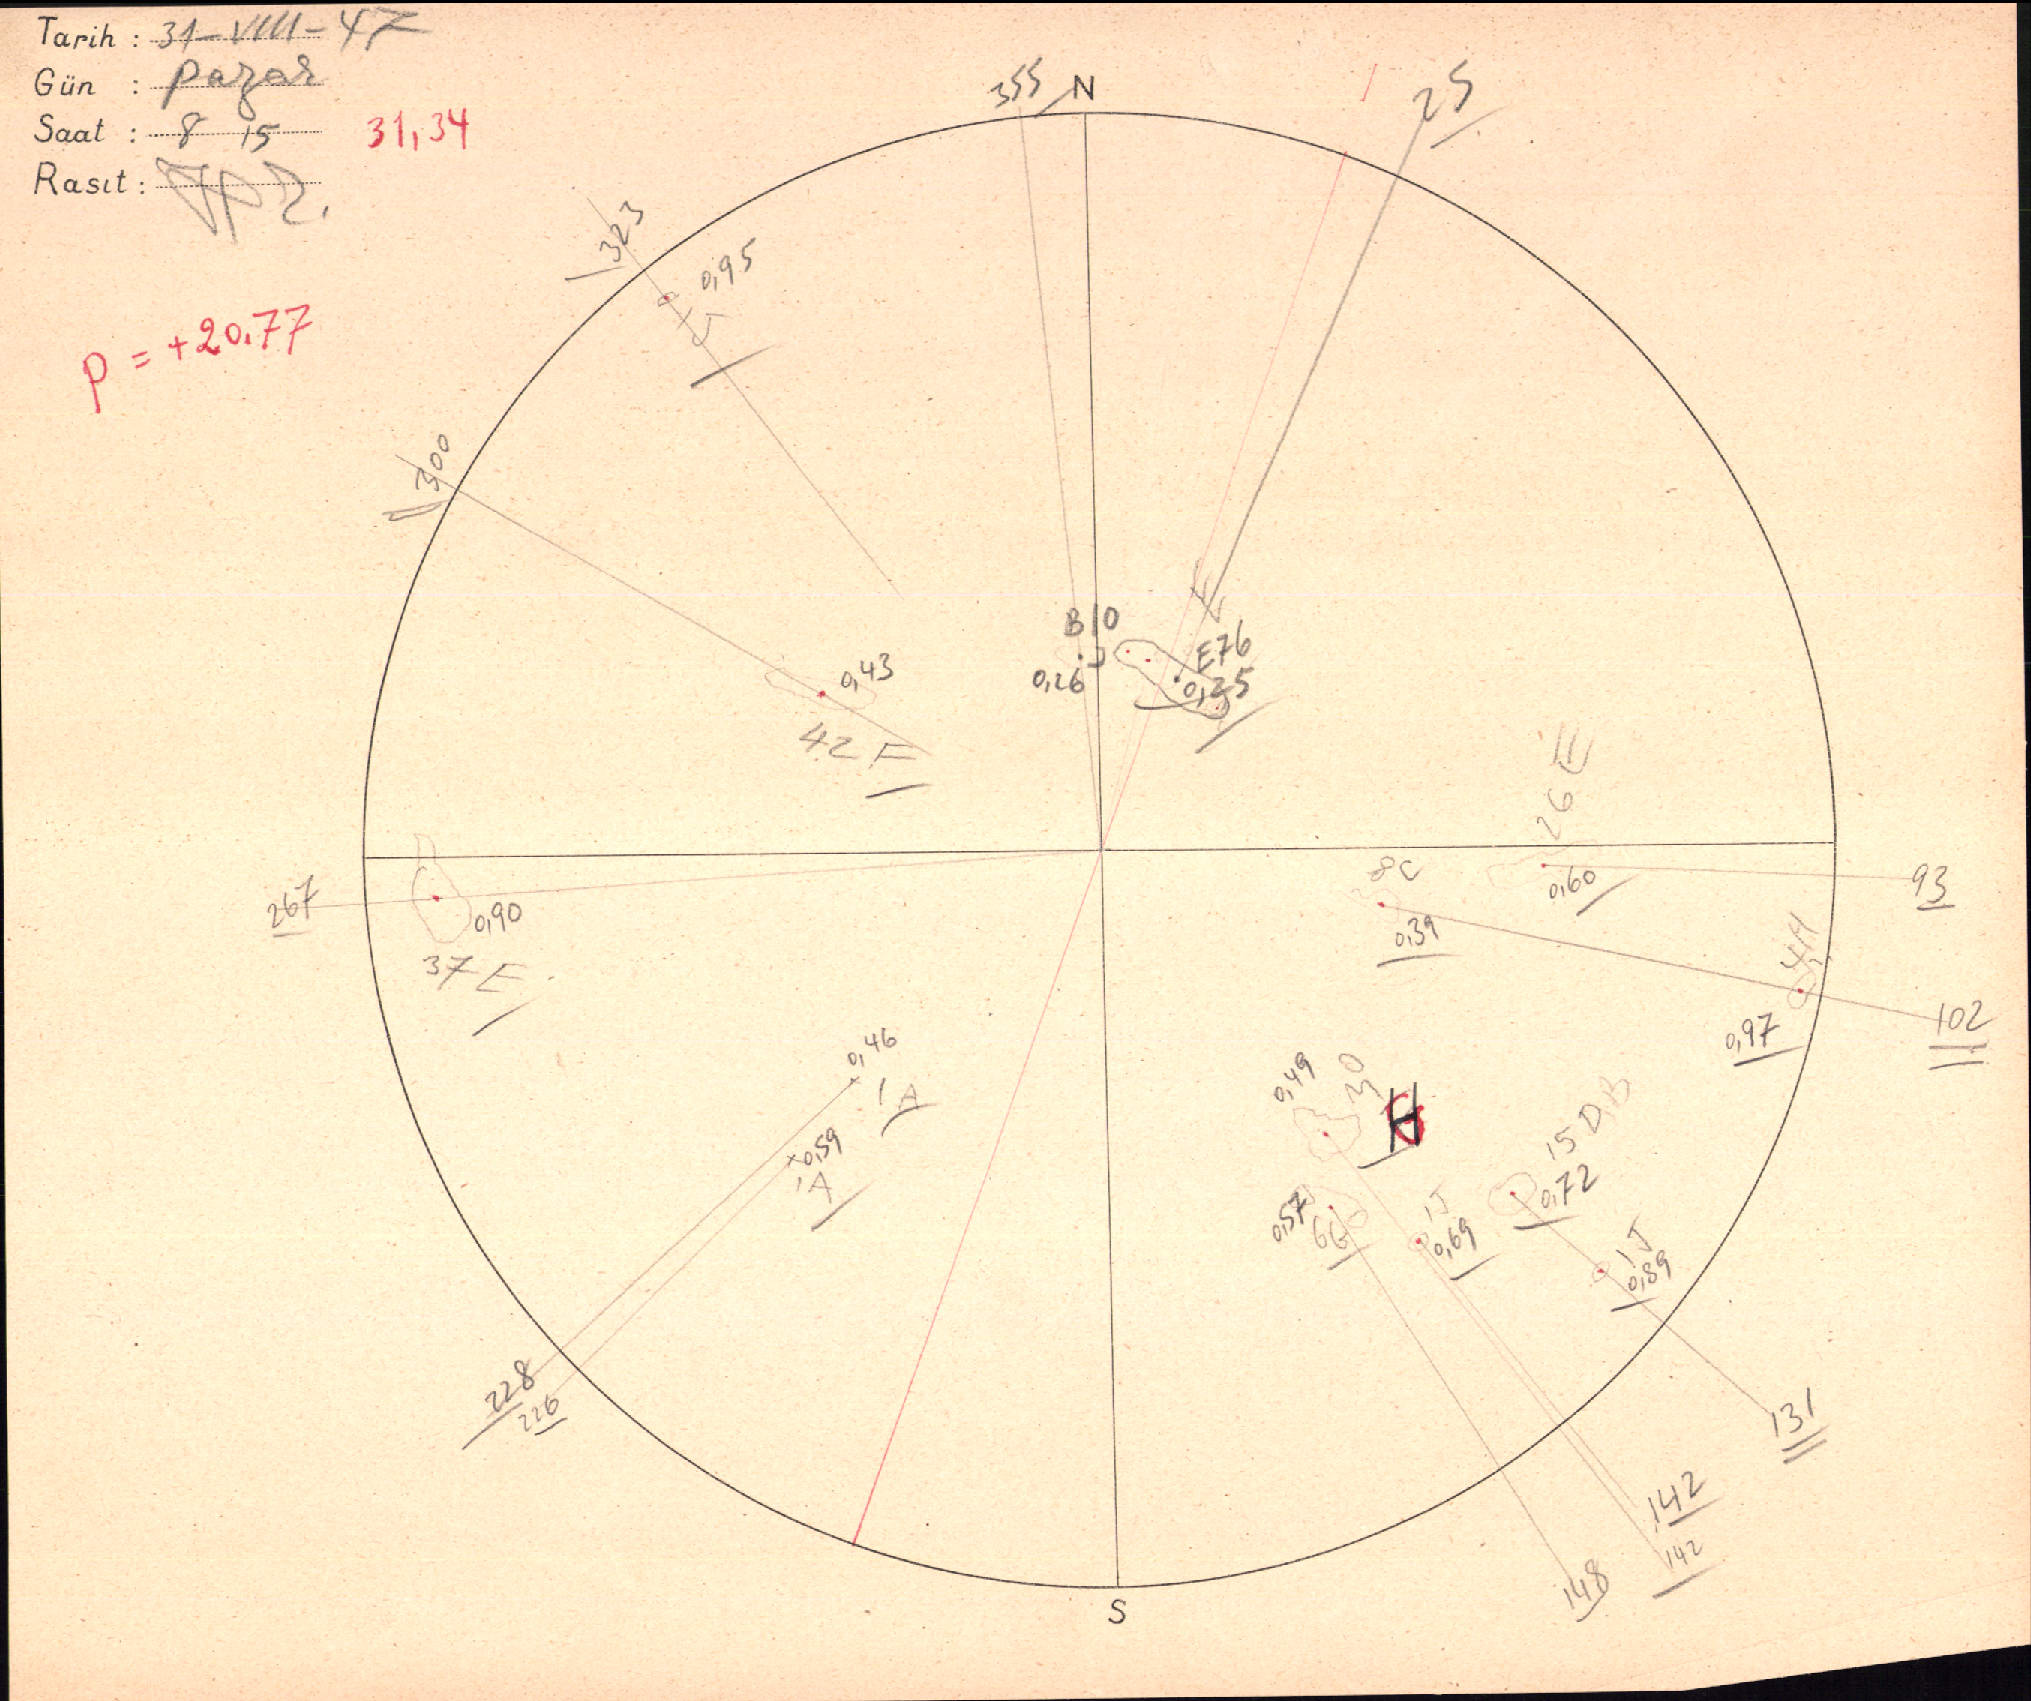 Tarih : 31-VIII-47
Gün : pazar
Saat : 8 15 31,34
Rasıt :
p = +20.77
355 N 25
323
0,95
J
300
0,43
42 F
B 10
J
0,26
E76
0,25
26 E
0,60
93
8C
0,39
4A
0,97
102
267
0,90
37 E
0,46
1 A
0,59
1A
228
226
0,49
30
H
0,57
6G
1J
0,69
15 D,B
0,72
1 J
0,89
131
142
142
148
S